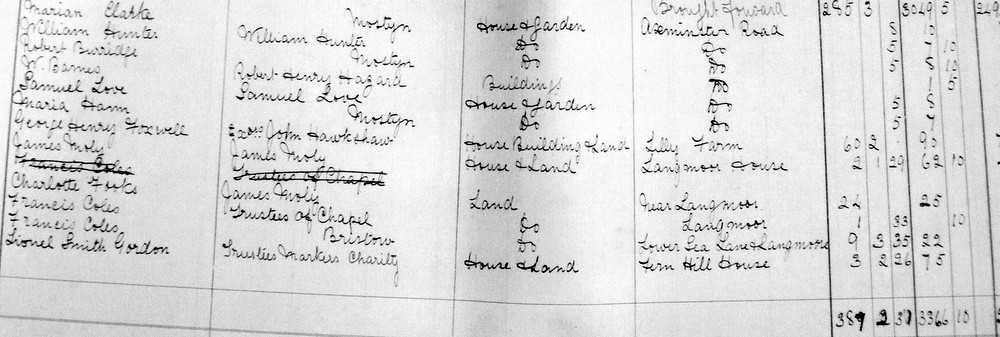 Brought Forward 285 3 3049 5 249
Marian Clarke Mostyn House & Garden Axminster Road 8 10
William Hunter William Hunter Do Do 5 7 10
Robert Burridge Mostyn Do Do 5 8 10
W. Barnes Robert Henry Hazard Buildings Do 1 5
Samuel Love Samuel Love House & Garden Do 5 8
Maria Hann Mostyn Do Do 5 7
George Henry Foxwell Exors John Hawkshaw House Building & Land Lilly Farm 60 2 . 90
James Moly James Moly House & Land Langmoor House 2 1 29 62 10
Francis Coles Trustees of Chapel
Charlotte Fooks James Moly Land Near Langmoor 24 25
Francis Coles Trustees of Chapel Do Langmoor 1 33 10
Francis Coles Bristow Do Lower Sea Lane & Langmoor 9 3 35 22
Lionel Smith Gordon Trustees Markers Charilty House & Land Fern Hill House 3 2 26 75
389 2 37 3366 10